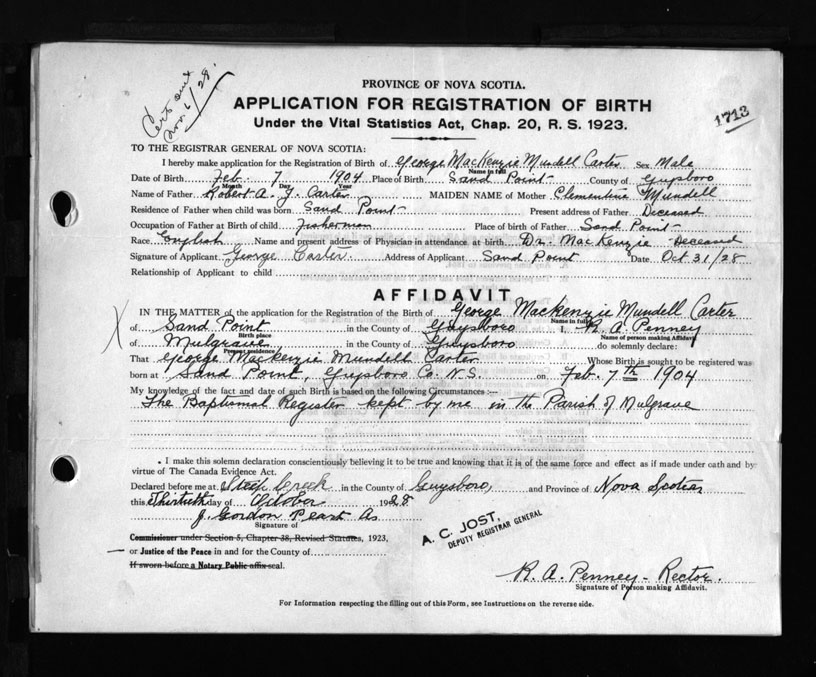 Cert sent
Nov. 6/28.
PROVINCE OF NOVA SCOTIA.
APPLICATION FOR REGISTRATION OF BIRTH
Under the Vital Statistics Act, Chap. 20, R. S. 1923.
1713
TO THE REGISTRAR GENERAL OF NOVA SCOTIA:
I hereby make application for the Registration of Birth of George MacKenzie Mundell Carter Sex Male
Name in full
Date of Birth Feb. 7 1904 Place of Birth Sand Point County of Guysboro
Month Day Year
Name of Father Robert A. J. Carter MAIDEN NAME of Mother Clementine Mundell
Residence of Father when child was born Sand Point Present address of Father Deceased
Occupation of Father at Birth of child Fisherman Place of birth of Father Sand Point
Race English Name and present address of Physician in attendance at birth Dr. MacKenzie Deceased
Signature of Applicant George Carter Address of Applicant Sand Point Date Oct 31/28
Relationship of Applicant to child
AFFIDAVIT
IN THE MATTER of the application for the Registration of the Birth of George Mackenzie Mundell Carter
Name in full
X of Sand Point in the County of Guysboro I, R A Penney
Birth place Name of person making Affidavit
of Mulgrave in the County of Guysboro do solemnly declare:
Present residence
That George Mackenzie Mundell Carter Whose Birth is sought to be registered was
born at Sand Point, Guysboro Co. N.S. on Feb. 7th 1904
My knowledge of the fact and date of such Birth is based on the following Circumstances:—
The Baptismal Register kept by me in the Parish of Mulgrave
I make this solemn declaration conscientiously believing it to be true and knowing that it is of the same force and effect as if made under oath and by
virtue of The Canada Evidence Act.
Declared before me at Steep Creek in the County of Guysboro, and Province of Nova Scotia
this Thirtieth day of October 1928
J. Gordon Peart
Signature of
Commissioner under Section 5, Chapter 38, Revised Statutes, 1923,
or Justice of the Peace in and for the County of
If sworn before a Notary Public affix seal.
A. C. JOST,
DEPUTY REGISTRAR GENERAL
R. A. Penney - Rector.
Signature of Person making Affidavit.
For Information respecting the filling out of this Form, see Instructions on the reverse side.